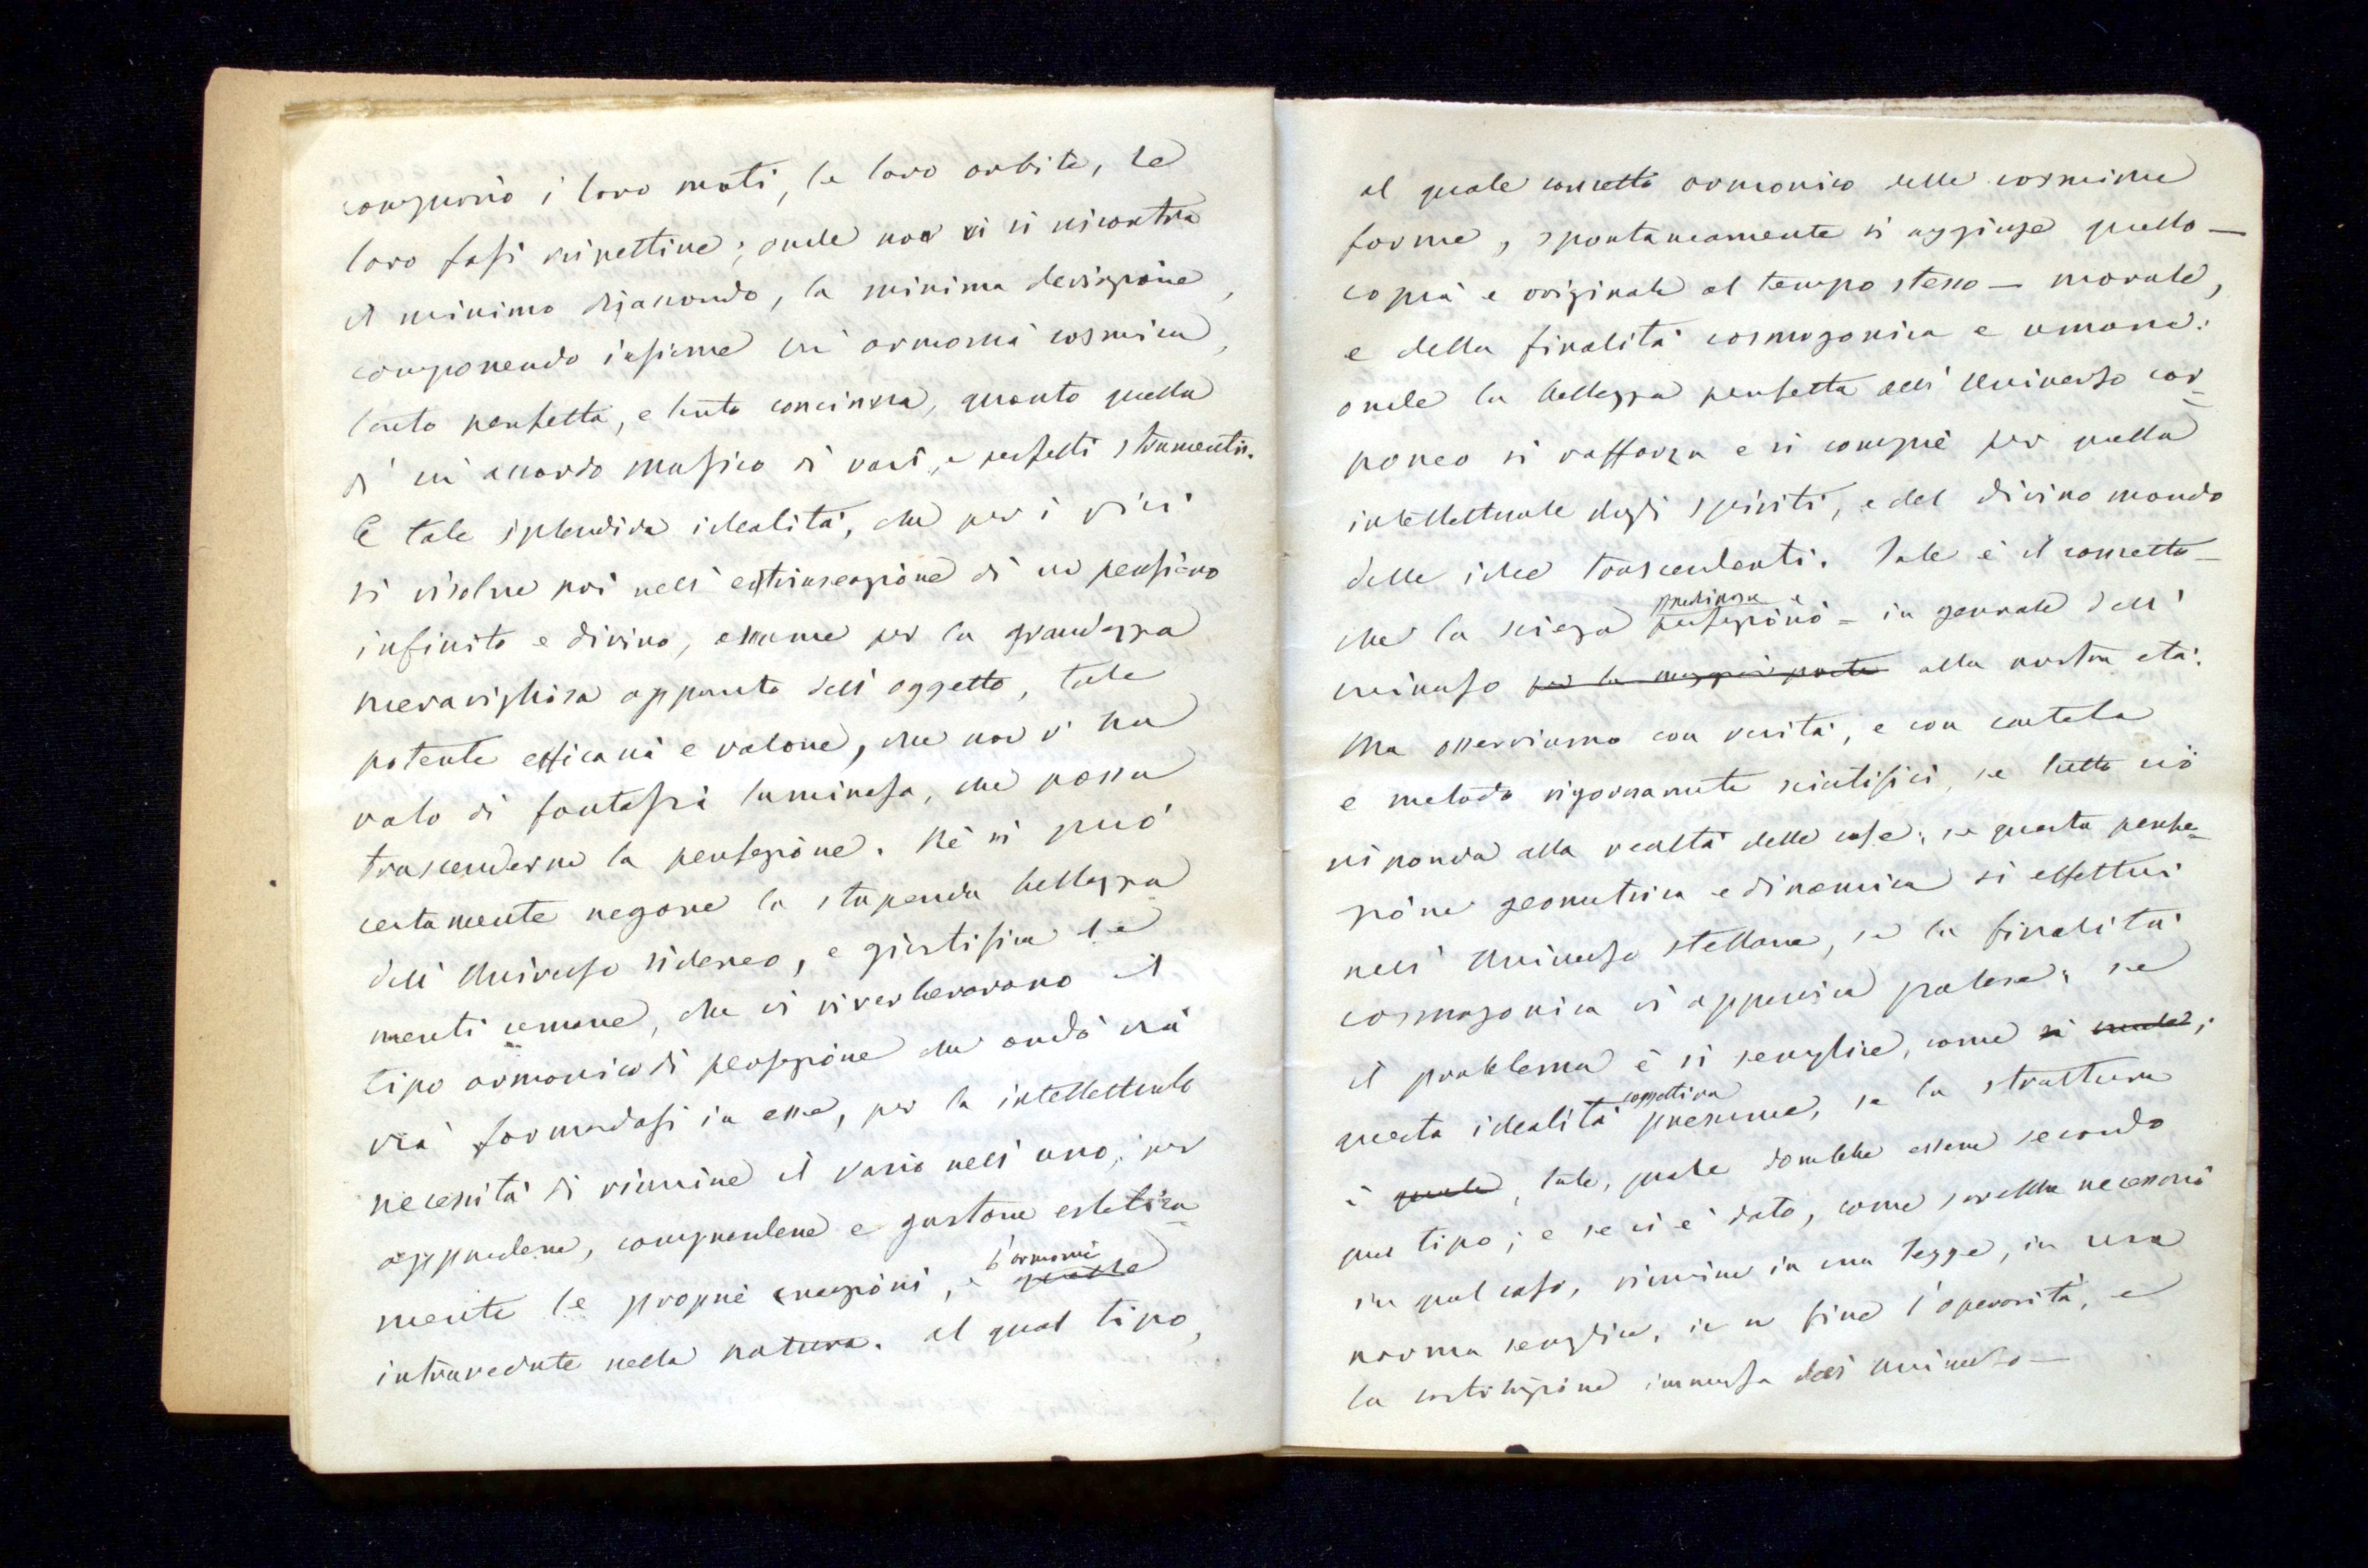 compiono i loro moti, le loro orbite, le
loro fasi rispettive; onde non vi si riscontra
il minimo disaccordo, la minima deviazione,
componendo insieme un' armonia cosmica,
tanto perfetta, e tanto concinna, quanto quella
di un accordo musico di vari, e perfetti strumenti.
E tale splendida idealità, che per i più
si risolve poi nell' estrinsecazione di un pensiero
infinito e divino, assume per la grandezza
meravigliosa appunto dell' oggetto, tale
potente efficacia e valore, che non v' ha
volo di fantasia luminosa, che possa
trascenderne la perfezione. Nè si può
certamente negare la stupenda bellezza
dell' Universo sidereo, e giustifica le
menti umane, che vi riverberarono il
tipo armonico di perfezione che andò via
via formandosi in esse, per la intellettuale
necessità di riunire il vario nell' uno, per
apprendere, comprendere e gustare estetica=
mente le proprie emozioni, e l'armonie quelle
intravedute nella natura. Al qual tipo,
al quale concetto armonico delle cosmiche
forme, spontaneamente si aggiunse quello —
copia e originale al tempo stesso — morale,
e della finalità cosmogonica e umana:
onde la bellezza perfetta dell' Universo cor=
poreo si rafforza e si compie per quella
intellettuale degli spiriti, e del divino mondo
delle idee trascendenti. Tale è il concetto —
che la scienza perfezionò — in generale dell'
universo per la maggior parte alla nostra età.
Ma osserviamo con verità, e con cautela
e metodo rigorosamente scientifici, se tutto ciò
risponda alla realtà delle cose; se questa perfe=
zione geometrica e dinamica si effettui
nell' Universo stellare, se la finalità
cosmogonica vi apparisca palese; se
il problema è sì semplice, come si crede;
questa idealità soggettiva presume, se la struttura
è quale, tale, quale dovrebbe essere secondo
quel tipo; e se ci è dato, come sarebbe necessario
in qual caso, riunire in una legge, in una
norma semplice, in un fine l'operosità, e
la costituzione immensa dell' universo —